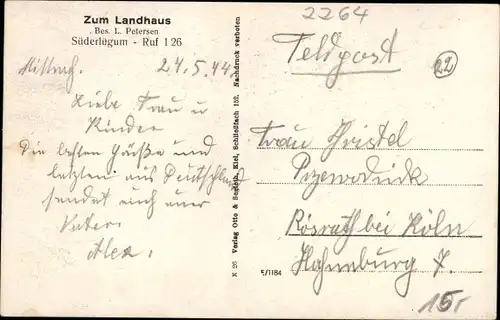 Zum Landhaus
Bes. L. Petersen
Süderlügum - Ruf 126
Mittwoch. 24.5.44
Liebe Frau u
Kinder
Die besten Grüße und
letzten aus Deutschland
sendet euch euer
Vater.
Alex.
X 26 Verlag Otto Kiel, Schließfach 152. Nachdruck verboten
2264
Feldpost
22
Frau Kristel
Przewodnick
Rösrath bei Köln
Hahnenburg 7.
E/1184
15,-